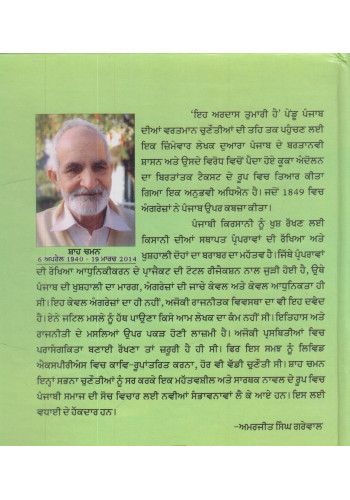 'ਇਹ ਅਰਦਾਸ ਤੁਮਾਰੀ ਹੈ' ਪੇਂਡੂ ਪੰਜਾਬ
ਦੀਆਂ ਵਰਤਮਾਨ ਚੁਣੌਤੀਆਂ ਦੀ ਤਹਿ ਤਕ ਪਹੁੰਚਣ ਲਈ
ਇਕ ਜ਼ਿੰਮੇਵਾਰ ਲੇਖਕ ਦੁਆਰਾ ਪੰਜਾਬ ਦੇ ਬਰਤਾਨਵੀ
ਸ਼ਾਸਨ ਅਤੇ ਉਸਦੇ ਵਿਰੋਧ ਵਿਚੋਂ ਪੈਦਾ ਹੋਏ ਕੂਕਾ ਅੰਦੋਲਨ
ਦਾ ਬਿਰਤਾਂਤਕ ਟੈਕਸਟ ਦੇ ਰੂਪ ਵਿਚ ਤਿਆਰ ਕੀਤਾ
ਗਿਆ ਇਕ ਅਨੁਭਵੀ ਅਧਿਐਨ ਹੈ। ਜਦੋਂ 1849 ਵਿਚ
ਅੰਗਰੇਜ਼ਾਂ ਨੇ ਪੰਜਾਬ ਉਪਰ ਕਬਜ਼ਾ ਕੀਤਾ।
ਪੰਜਾਬੀ ਕਿਰਸਾਨੀ ਨੂੰ ਖੁਸ਼ ਰੱਖਣ ਲਈ
ਕਿਸਾਨੀ ਦੀਆਂ ਸਥਾਪਤ ਪ੍ਰੰਪਰਾਵਾਂ ਦੀ ਰੱਖਿਆ ਅਤੇ
ਖੁਸ਼ਹਾਲੀ ਦੋਹਾਂ ਦਾ ਬਰਾਬਰ ਦਾ ਮਹੱਤਵ ਹੈ। ਜਿੱਥੇ ਪ੍ਰੰਪਰਾਵਾਂ
ਦੀ ਰੱਖਿਆ ਆਧੁਨਿਕੀਕਰਨ ਦੇ ਪ੍ਰਾਜੈਕਟ ਦੀ ਟੋਟਲ ਰੀਜੈਕਸ਼ਨ ਨਾਲ ਜੁੜੀ ਹੋਈ ਹੈ, ਉਥੇ
ਪੰਜਾਬ ਦੀ ਖੁਸ਼ਹਾਲੀ ਦਾ ਮਾਰਗ, ਅੰਗਰੇਜ਼ਾਂ ਦੀ ਜਾਚੇ ਕੇਵਲ ਅਤੇ ਕੇਵਲ ਆਧੁਨਿਕਤਾ ਹੀ
ਸੀ। ਇਹ ਕੇਵਲ ਅੰਗਰੇਜ਼ਾਂ ਦਾ ਹੀ ਨਹੀਂ, ਅਜੋਕੀ ਰਾਜਨੀਤਕ ਵਿਵਸਥਾ ਦਾ ਵੀ ਇਹ ਦਵੰਦ
ਹੈ। ਏਨੇ ਜਟਿਲ ਮਸਲੇ ਨੂੰ ਹੱਥ ਪਾਉਣਾ ਕਿਸੇ ਆਮ ਲੇਖਕ ਦਾ ਕੰਮ ਨਹੀਂ ਸੀ। ਇਤਿਹਾਸ ਅਤੇ
ਰਾਜਨੀਤੀ ਦੇ ਮਸਲਿਆਂ ਉਪਰ ਪਕੜ ਹੋਣੀ ਲਾਜ਼ਮੀ ਹੈ। ਅਜੋਕੀ ਪ੍ਰਸਥਿਤੀਆਂ ਵਿਚ
ਪਰਾਸੰਗਿਕਤਾ ਬਣਾਈ ਰੱਖਣਾ ਤਾਂ ਜ਼ਰੂਰੀ ਹੈ ਹੀ ਸੀ। ਫਿਰ ਇਸ ਸਮਝ ਨੂੰ ਲਿਵਿਡ
ਐਕਸਪੀਰੀਐਂਸ ਵਿਚ ਕਾਵਿ-ਰੂਪਾਂਤਰਿਤ ਕਰਨਾ, ਹੋਰ ਵੀ ਵੱਡੀ ਚੁਣੌਤੀ ਸੀ। ਸ਼ਾਹ ਚਮਨ
ਇਨ੍ਹਾਂ ਸਭਨਾ ਚੁਣੌਤੀਆਂ ਨੂੰ ਸਰ ਕਰਕੇ ਇਕ ਮਹੱਤਵਸ਼ੀਲ ਅਤੇ ਸਾਰਥਕ ਨਾਵਲ ਦੇ ਰੂਪ ਵਿਚ
ਪੰਜਾਬੀ ਸਮਾਜ ਦੀ ਸੋਚ ਵਿਚਾਰ ਲਈ ਨਵੀਆਂ ਸੰਭਾਵਨਾਵਾਂ ਲੈ ਕੇ ਆਏ ਹਨ। ਇਸ ਲਈ
ਵਧਾਈ ਦੇ ਹੱਕਦਾਰ ਹਨ।
-ਅਮਰਜੀਤ ਸਿੰਘ ਗਰੇਵਾਲ
ਸ਼ਾਹ ਚਮਨ
6 ਅਪਰੈਲ 1940 - 19 ਮਾਰਚ 2014